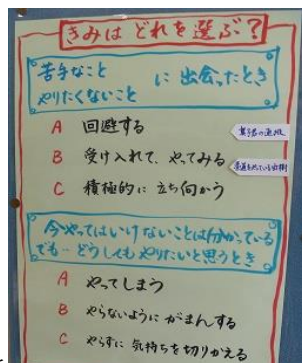 きみは どれを選ぶ?
苦手なこと
やりたくないこと
に 出会ったとき
A 回避する
B 受け入れて、やってみる
C 積極的に 立ち向かう
今やってはいけないことは分かっている
でも… どうしてもやりたいと思うとき
A やってしまう
B やらないように がまんする
C やらずに 気持ちを切りかえる